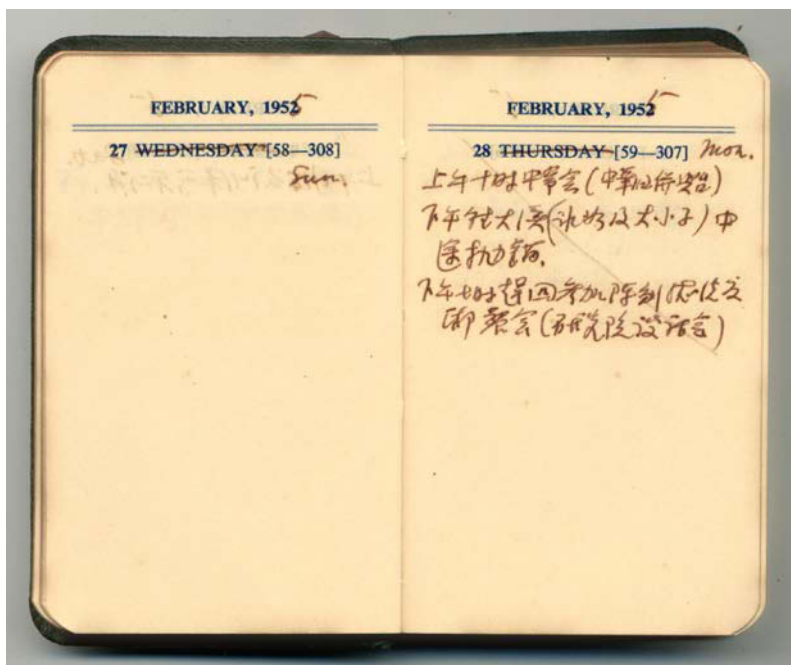 FEBRUARY, 1952 5
27 WEDNESDAY [58—308]
Sun.
FEBRUARY, 1952 5
28 THURSDAY [59—307] Mon.
上午十时中常会(中華
下午往大溪( 及大小子)中
途抛锚.
下午七时赶回参加陈副总统
会(研究院谈话会)